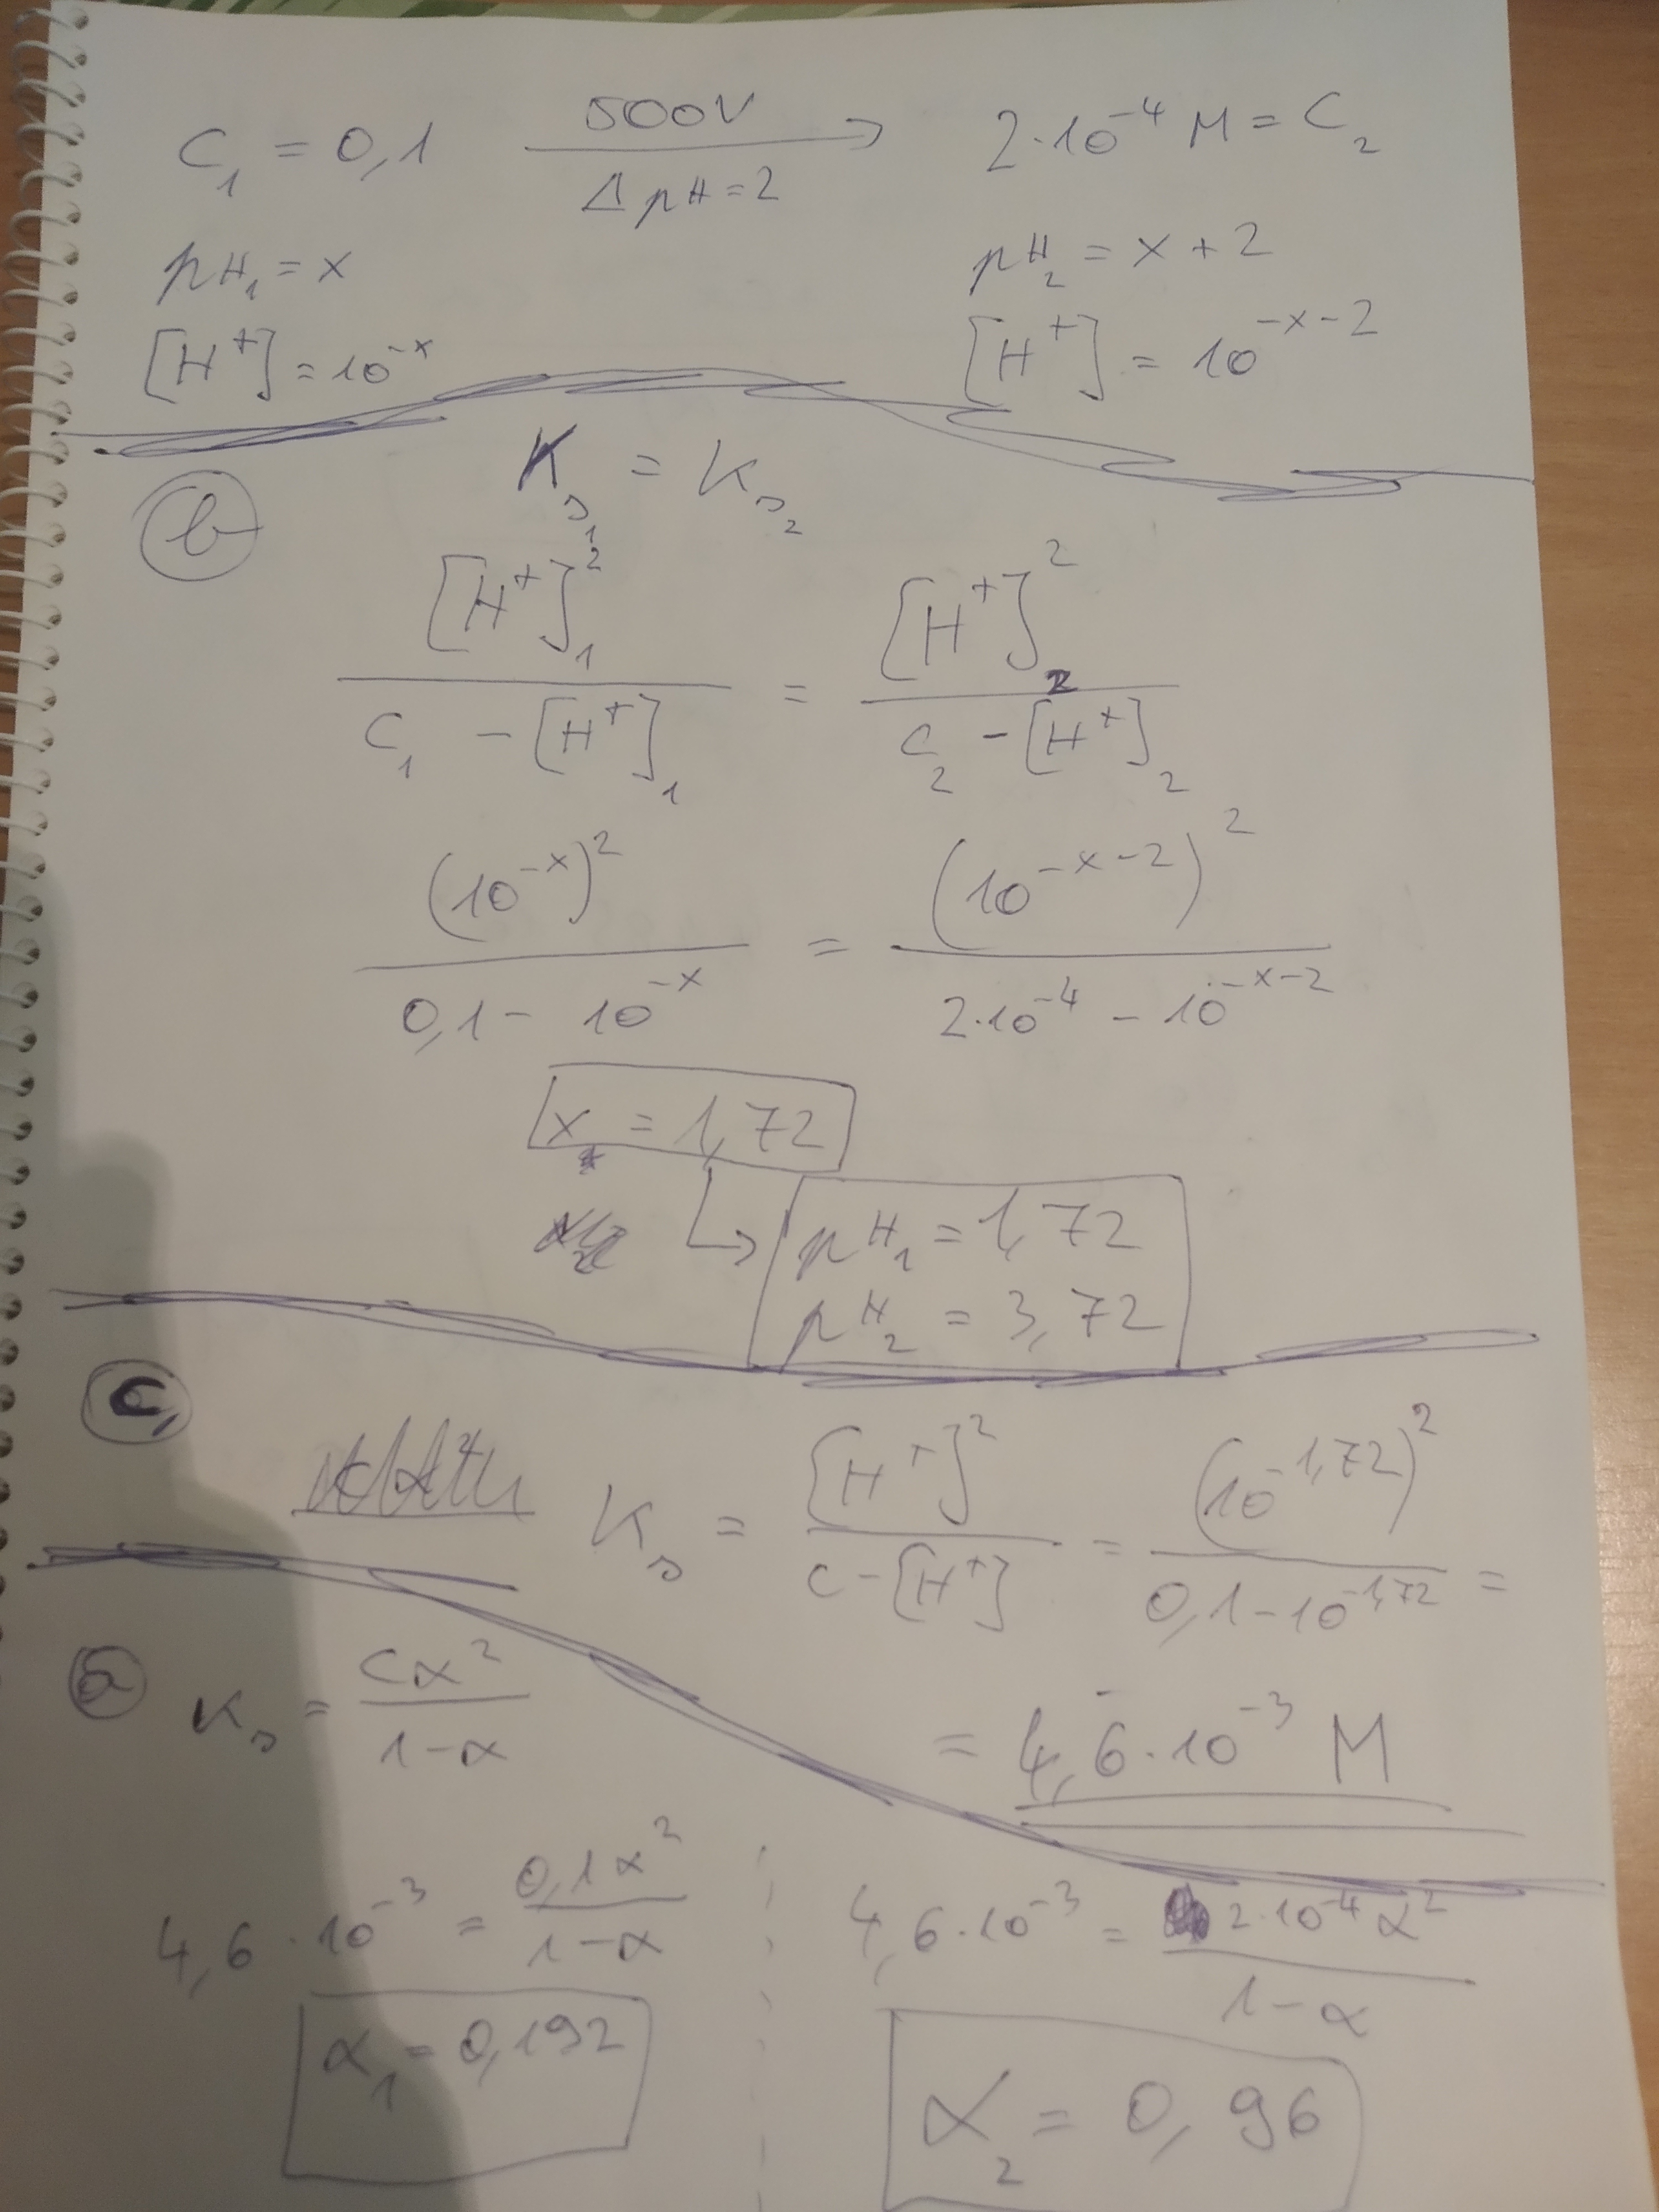 C₁ = 0,1 500V → 2·10⁻⁴ M = C₂
ΔpH = 2
pH₁ = x pH₂ = x + 2
[H⁺] = 10⁻ˣ [H⁺] = 10^(-x-2)
b K_s₁ = K_s₂
[H⁺]₁² / (C₁ - [H⁺]₁) = [H⁺]₂² / (C₂ - [H⁺]₂)
(10⁻ˣ)² / (0,1 - 10⁻ˣ) = (10^(-x-2))² / (2·10⁻⁴ - 10^(-x-2))
x = 1,72
pH₁ = 1,72
pH₂ = 3,72
c, K_s = [H⁺]² / (c - [H⁺]) = (10^(-1,72))² / (0,1 - 10^(-1,72)) =
= 4,6·10⁻³ M
a K_s = cα² / (1-α)
4,6·10⁻³ = 0,1α² / (1-α)
α₁ = 0,192
4,6·10⁻³ = 2·10⁻⁴α² / (1-α)
α₂ = 0,96